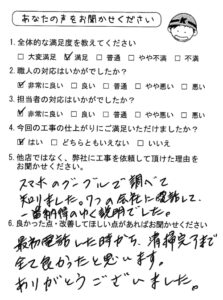 あなたの声をお聞かせください
1. 全体的な満足度を教えてください
□ 大変満足 ☑ 満足 □ 普通 □ やや不満 □ 不満
2. 職人の対応はいかがでしたか？
☑ 非常に良い □ 良い □ 普通 □ やや悪い □ 悪い
3. 担当者の対応はいかがでしたか？
☑ 非常に良い □ 良い □ 普通 □ やや悪い □ 悪い
4. 今回の工事の仕上がりにご満足いただけましたか？
☑ はい □ どちらともいえない □ いいえ
5. 他店ではなく、弊社に工事を依頼して頂けた理由を
お聞かせください。
スマホのグーグルで調べて
知りました。7つの会社に電話して、
一番納得のゆく説明でした。
6. 良かった点・改善してほしい点があればお聞かせください
最初電話した時から、清掃完了まで
全て良かったと思います。
ありがとうございました。